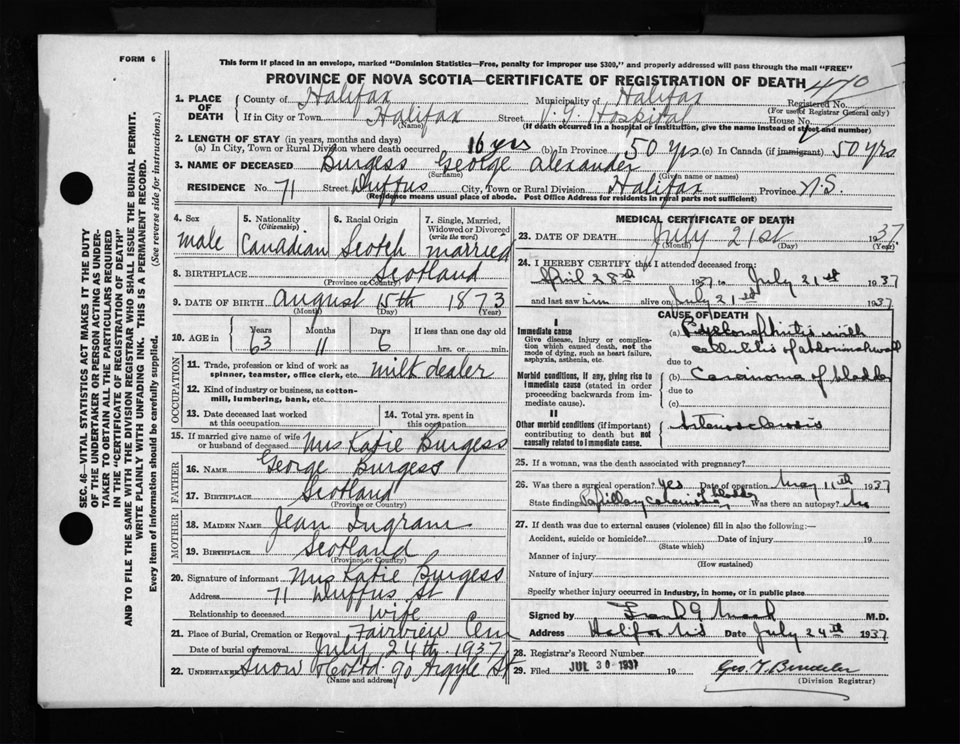 FORM 6
This form if placed in an envelope, marked "Dominion Statistics—Free, penalty for improper use $300," and properly addressed will pass through the mail "FREE"
PROVINCE OF NOVA SCOTIA—CERTIFICATE OF REGISTRATION OF DEATH 470
1. PLACE OF DEATH
County of Halifax Municipality of Halifax Registered No.
(For use of Registrar General only)
If in City or Town Halifax Street V.G. Hospital House No.
(Name) (If death occurred in a hospital or institution, give the name instead of street and number)
2. LENGTH OF STAY (in years, months and days)
(a) In City, Town or Rural Division where death occurred 16 yrs (b) In Province 50 yrs. (c) In Canada (if immigrant) 50 yrs.
3. NAME OF DECEASED Burgess George Alexander
(Surname) (Given name or names)
RESIDENCE No. 71 Street Duffus City, Town or Rural Division Halifax Province N.S.
(Residence means usual place of abode. Post Office Address for residents in rural parts not sufficient)
4. Sex
male
5. Nationality
(Citizenship)
Canadian
6. Racial Origin
Scotch
7. Single, Married, Widowed or Divorced
(write the word)
married
8. BIRTHPLACE Scotland
(Province or Country)
9. DATE OF BIRTH August 15th 1873
(Month) (Day) (Year)
10. AGE in
Years Months Days If less than one day old
63 11 6 hrs. or min.
OCCUPATION
11. Trade, profession or kind of work as
spinner, teamster, office clerk, etc. milk dealer
12. Kind of industry or business, as cotton-
mill, lumbering, bank, etc.
13. Date deceased last worked
at this occupation
14. Total yrs. spent in
this occupation
15. If married give name of wife
or husband of deceased Mrs Katie Burgess
FATHER
16. NAME George Burgess
17. BIRTHPLACE Scotland
(Province or Country)
MOTHER
18. MAIDEN NAME Jean Ingram
19. BIRTHPLACE Scotland
(Province or Country)
20. Signature of informant Mrs Katie Burgess
Address 71 Duffus St
Relationship to deceased wife
21. Place of Burial, Cremation or Removal Fairview Cem
Date of burial or removal July 24th 1937
22. UNDERTAKER Snow & Co Ltd. 90 Argyle St
(Name and address)
MEDICAL CERTIFICATE OF DEATH
23. DATE OF DEATH July 21st 1937
(Month) (Day) (Year)
24. I HEREBY CERTIFY that I attended deceased from:
April 28th 1937 to July 21st 1937
and last saw him alive on July 21st 1937
CAUSE OF DEATH
I
Immediate cause
Give disease, injury or complication which caused death, not the mode of dying, such as heart failure, asphyxia, asthenia, etc.
(a) Pyelonephritis with
cellulitis of abdominal wall
due to
Morbid conditions, if any, giving rise to immediate cause (stated in order proceeding backwards from immediate cause).
(b) Carcinoma of bladder
due to
(c)
II
Other morbid conditions (if important) contributing to death but not causally related to immediate cause.
Arteriosclerosis
25. If a woman, was the death associated with pregnancy?
26. Was there a surgical operation? Yes Date of operation May 11th 1937
State findings Papillary carcinoma of bladder Was there an autopsy? No
27. If death was due to external causes (violence) fill in also the following:—
Accident, suicide or homicide? Date of injury 19
(State which)
Manner of injury
(How sustained)
Nature of injury
Specify whether injury occurred in industry, in home, or in public place
Signed by Frank G Mack M.D.
Address Halifax N.S Date July 24th 1937
28. Registrar's Record Number
29. Filed JUL 30 1937 19
(Division Registrar)
SEC. 46—VITAL STATISTICS ACT MAKES IT THE DUTY
OF THE UNDERTAKER OR PERSON ACTING AS UNDER-
TAKER TO OBTAIN ALL THE PARTICULARS REQUIRED
IN THE "CERTIFICATE OF REGISTRATION OF DEATH"
AND TO FILE THE SAME WITH THE DIVISION REGISTRAR WHO SHALL ISSUE THE BURIAL PERMIT.
WRITE PLAINLY WITH UNFADING INK. THIS IS A PERMANENT RECORD.
Every item of information should be carefully supplied. (See reverse side for instructions.)